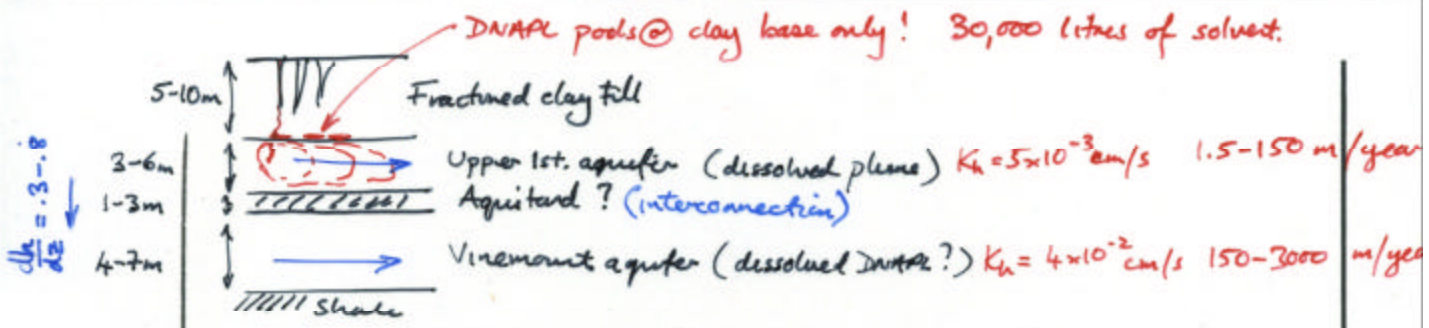 DNAPL pools @ clay base only! 30,000 litres of solvent.
5-10m Fractured clay till
3-6m Upper 1st. aquifer (dissolved plume) Kh = 5x10^-3 cm/s 1.5-150 m/year
1-3m Aquitard ? (interconnection)
dh/dz = .3-.8
4-7m Vinemount aquifer (dissolved DNAPL?) Kh = 4x10^-2 cm/s 150-3000 m/yea
Shale